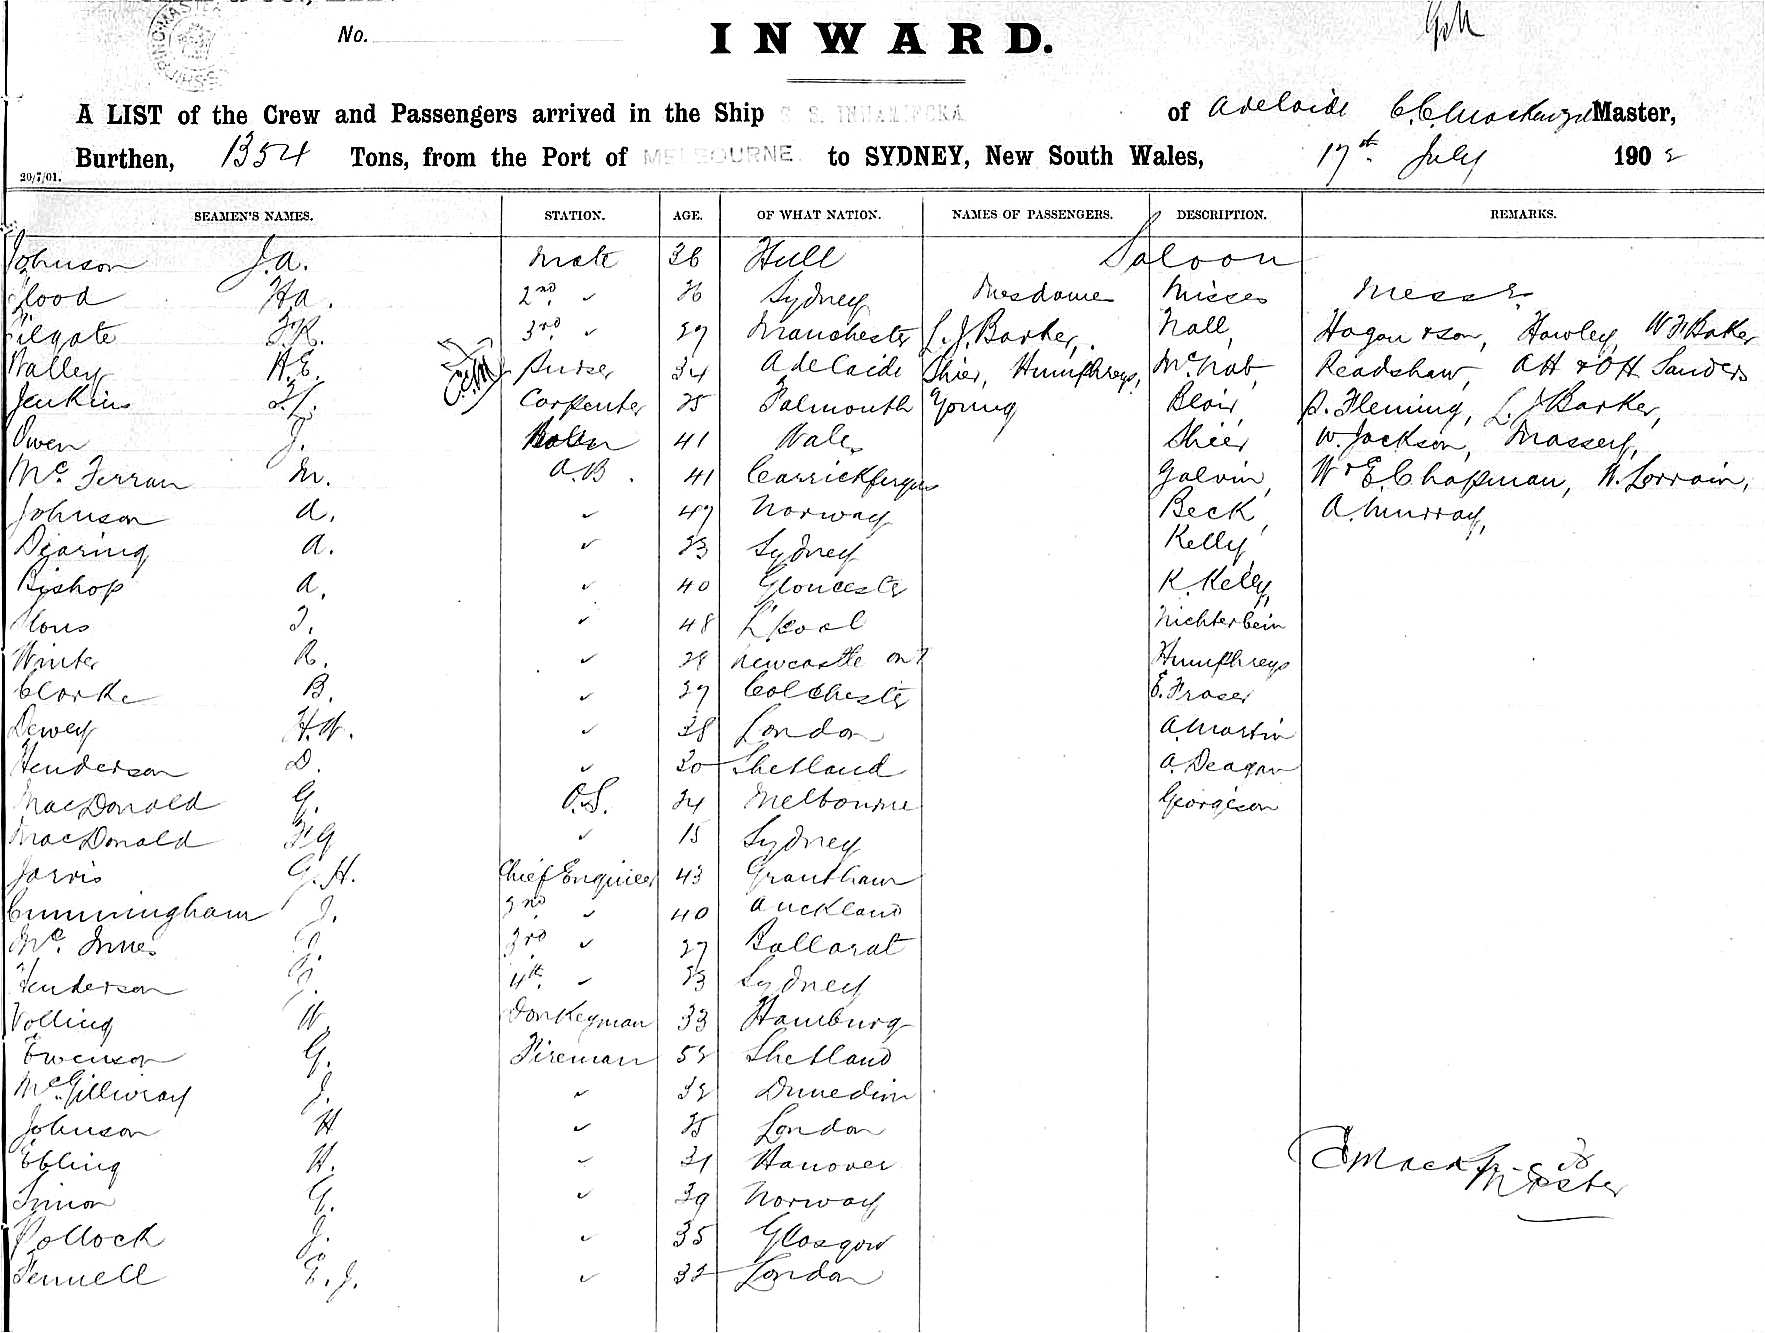 No.
INWARD.
A LIST of the Crew and Passengers arrived in the Ship S. S. INNAMINCKA of Adelaide C. C. Mackenzie Master,
Burthen, 1354 Tons, from the Port of MELBOURNE. to SYDNEY, New South Wales, 17th July 1902
20/7/01.
SEAMEN'S NAMES. STATION. AGE. OF WHAT NATION. NAMES OF PASSENGERS. DESCRIPTION. REMARKS.
Johnson J.A. Mate 36 Hull Saloon
Flood Ha. 2nd ✓ 26 Sydney Mesdames Misses Messrs
Filgate F.R. 3rd ✓ 27 Manchester L. J. Barker, Nall, Hogan & son, Hawley, W F Baker
Walley H.E. Purser 34 Adelaide Shier, Humphreys, McNab, Readshaw, AH & OH Sanders
Jenkins Carpenter 25 Falmouth Young Blair, P. Fleming, L. J Barker,
Owen J. 41 Wales Shier W. Jackson, Massey,
McFerran M. A.B. 41 Carrickfergus Galvin, W & E. Chapman, W. Lorrain,
Johnson A. ✓ 47 Norway Beck, A. Murray,
Dearing A. ✓ 23 Sydney Kelly,
Bishop A. ✓ 40 Gloucester K. Kelly,
T. ✓ 48 L'pool Nichterlein
Winter R. ✓ 28 Newcastle on T Humphreys
Clarke B. ✓ 27 Colchester E. Fraser
Dewey H.W. ✓ 38 London A. Martin
Henderson D. ✓ 30 Shetland A. Deagan
MacDonald G. O.S. 24 Melbourne Georgeson
MacDonald F G ✓ 15 Sydney
Jarvis G.H. Chief Engineer 43 Grantham
Cunningham J. 2nd ✓ 40 Auckland
McInnes J. 3rd ✓ 27 Ballarat
Henderson G. 4th ✓ 23 Sydney
Volling W. Donkeyman 33 Hamburg
Ewenson G. Fireman 52 Shetland
McGillivray J. ✓ 32 Dunedin
Johnson H ✓ 25 London
Ebling H. ✓ 31 Hanover
Simon G. ✓ 39 Norway
Pollock J. ✓ 35 Glasgow
Fennell E. J. ✓ 32 London
Master